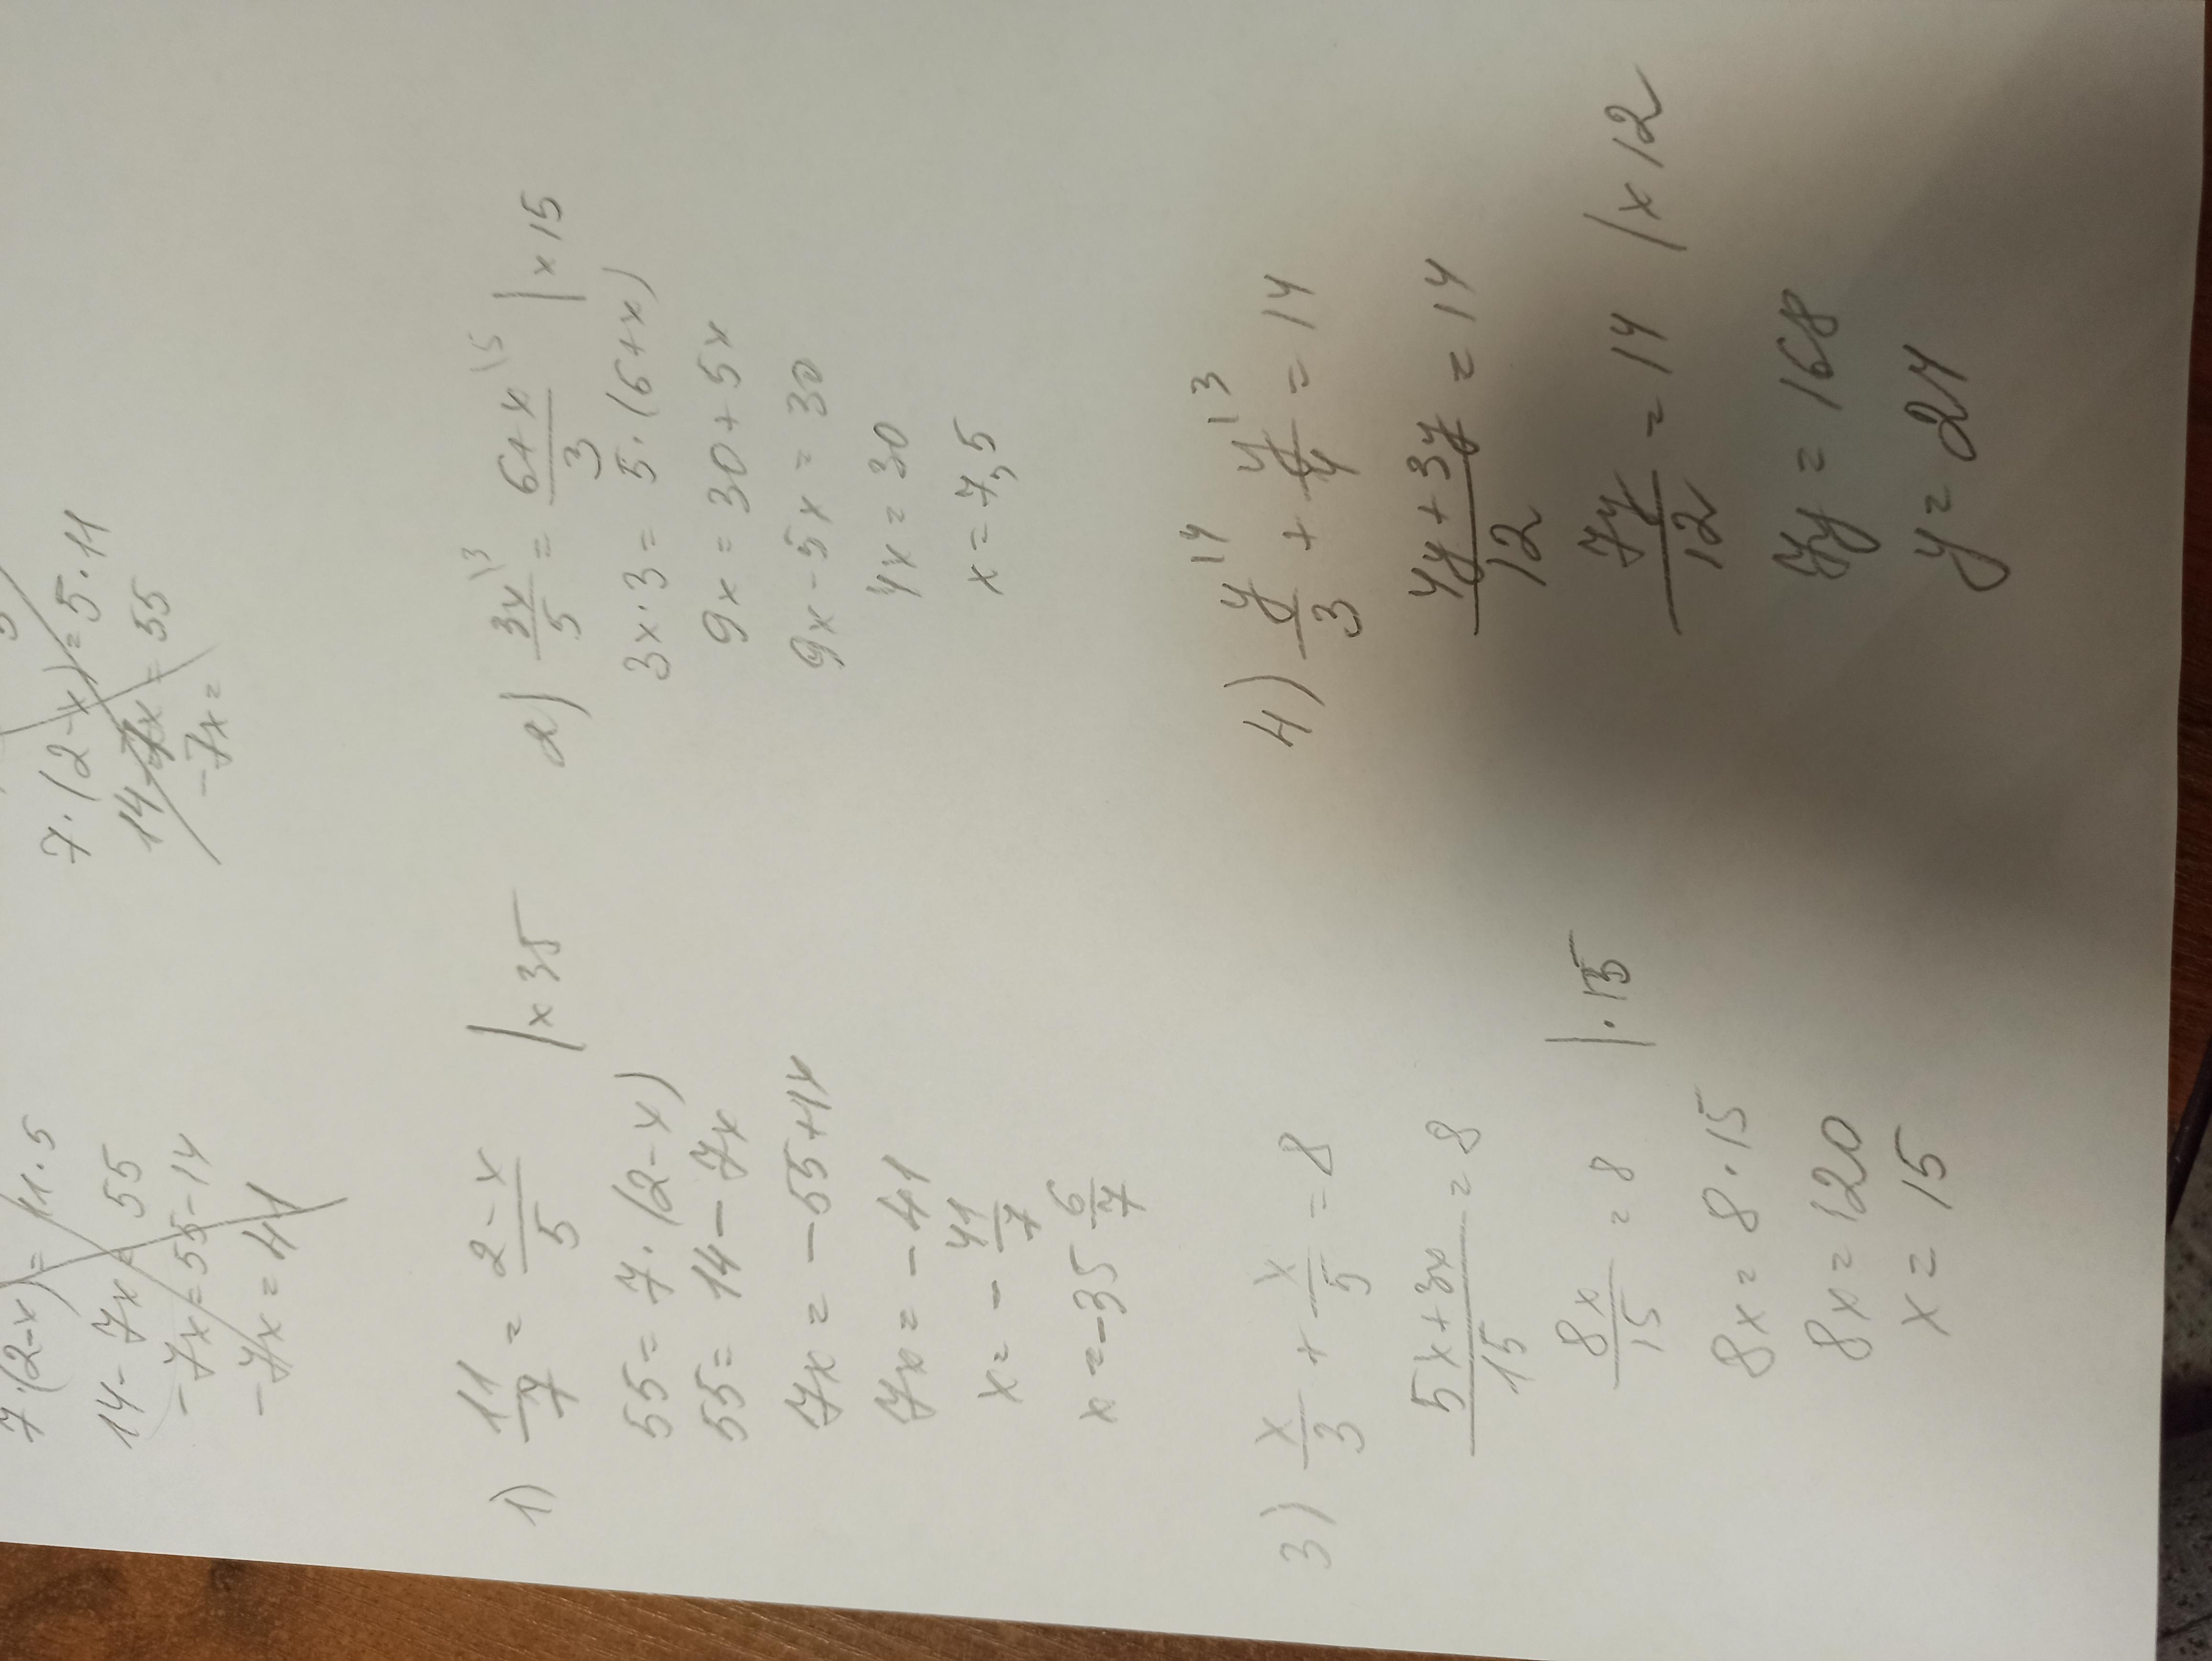 7·(2-x) = 11·5
14-7x = 55
-7x = 55-14
-7x = 41
7·(2-x) = 5·11
14-7x = 55
-7x =
1) 11/7 = 2-x/5 | x35
55 = 7·(2-x)
55 = 14-7x
7x = -55+14
7x = -41
x = -41/7
x = -35 6/7
2) 3x/5 \3 = 6+x/3 \5 | x15
3x·3 = 5·(6+x)
9x = 30+5x
9x-5x = 30
4x = 30
x = 7,5
3) x/3 + x/5 = 8
5x+3x/15 = 8
8x/15 = 8 | ·15
8x = 8·15
8x = 120
x = 15
4) y/3 \4 + y/4 \3 = 14
4y+3y/12 = 14
7y/12 = 14 | x12
7y = 168
y = 24